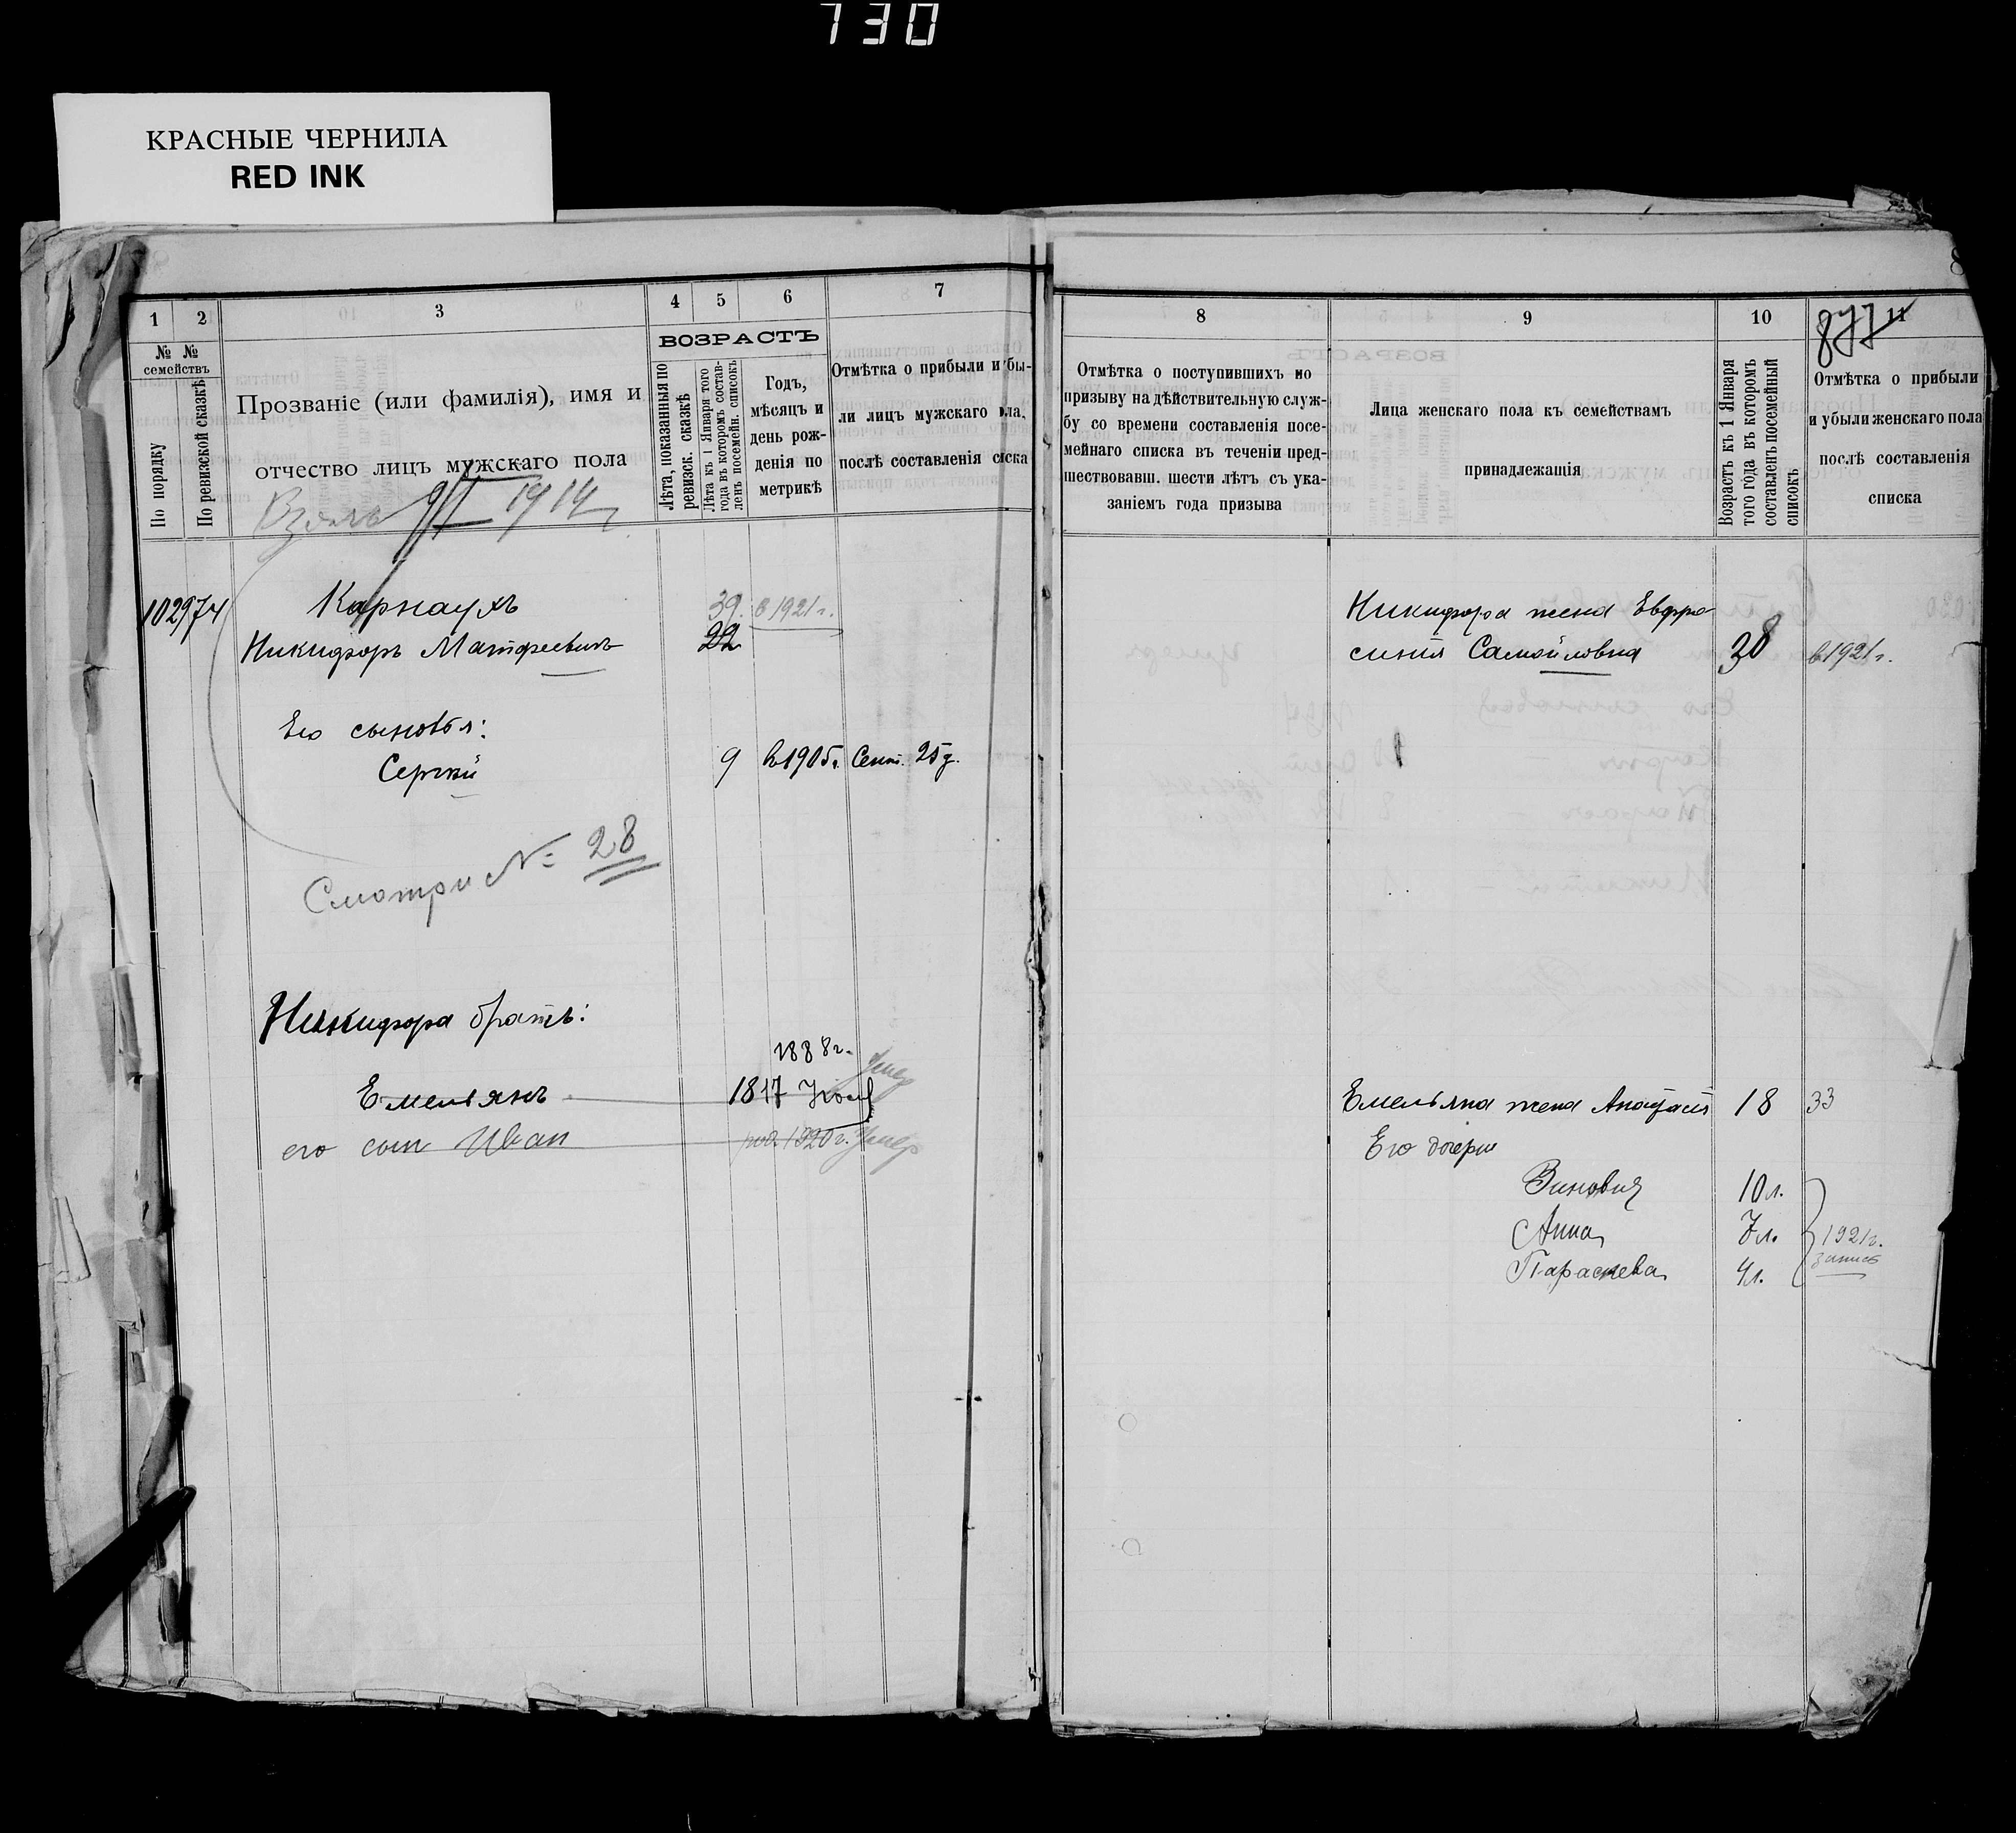 730
КРАСНЫЕ ЧЕРНИЛА
RED INK
1 2 3 4 5 6 7
№ № семействъ
По порядку
По ревизской сказкѣ
Прозваніе (или фамилія), имя и
отчество лицъ мужскаго пола
ВОЗРАСТЪ
Лѣта, показанныя по
ревизск. сказкѣ
Лѣта къ 1 Января того
года въ которомъ состав-
ленъ посемейн. списокъ
Годъ,
мѣсяцъ и
день рож-
денія по
метрикѣ
Отмѣтка о прибыли и убы-
ли лицъ мужского пола,
послѣ составленія списка
1914
1029 74 Карнаухъ 39. в 1921 г.
Никифоръ Матфеевичъ 22
Его сыновья:
Сергѣй 9 в 1905 г. Сент. 25 д.
Смотри № 28
Никифора братъ:
1888 г.
Емельянъ 18 17 Умер
его сын Иван род. 1920 г. Умер
8 9 10 11
877
Отмѣтка о поступившихъ по
призыву на дѣйствительную служ-
бу со времени составленія посе-
мейнаго списка въ теченіи пред-
шествовавш. шести лѣтъ съ ука-
заніемъ года призыва
Лица женскаго пола къ семействамъ
принадлежащія
Возрастъ къ 1 Января
того года въ которомъ
составленъ посемейный
списокъ
Отмѣтка о прибыли
и убыли женскаго пола
послѣ составленія
списка
Никифора жена Евфро
синия Самойловна 38 в 1921 г.
Емельяна жена Анастасія 18 33
Его дочери
Зиновия 10 л.
Анна 7 л. 1921 г.
Параскева 4 л. запись